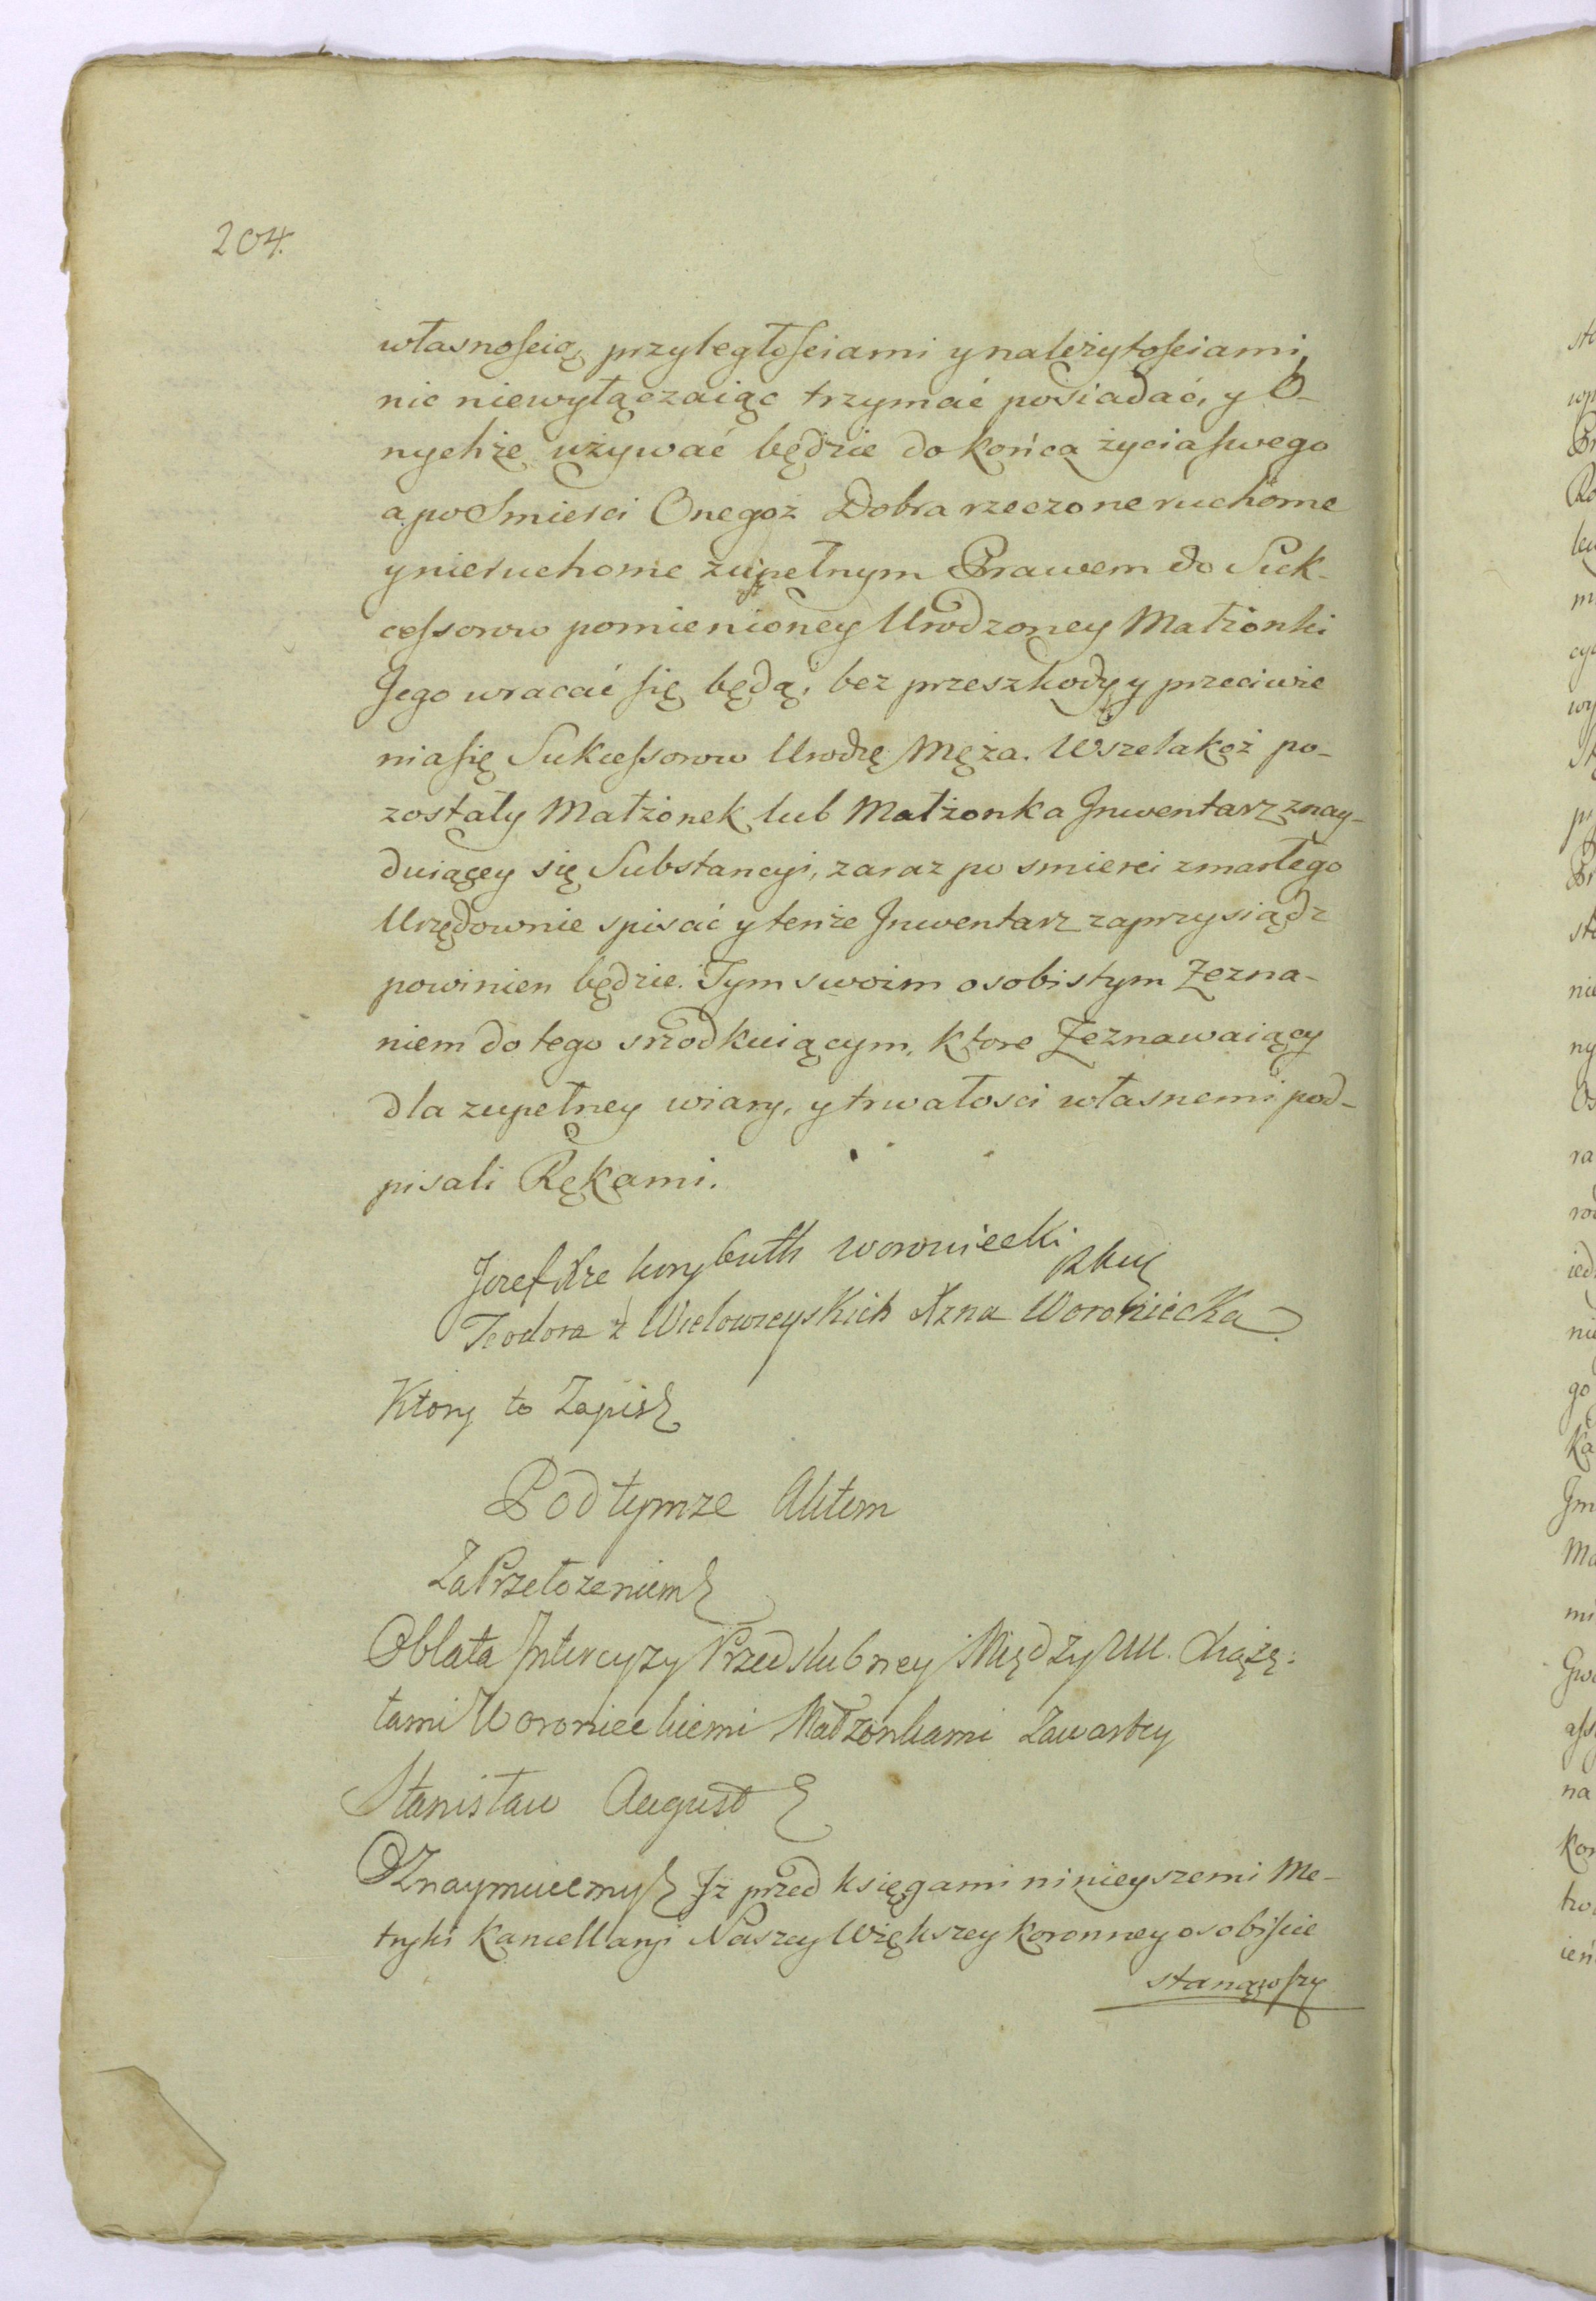 204.
własnością, przyległościami y należytościami,
nic niewyłączaiąc trzymać posiadać, y O-
nychże używać będzie do końca życia swego
a po Smierci Onegoż Dobra rzeczone ruchome
y nieruchome zupełnym Prawem do Suk-
cessorow pomienioney Urodzoney Małżonki
Jego wracać się będą, bez przeszkody y przeciwie
nia się Sukcessorow Urodzę Męża. Wszelakoż po-
zostały Małżonek lub Małżonka Inwentarz znay-
duiącey się Substancyi, zaraz po smierci zmarłego
Urzędownie spisać y tenże Inwentarz zaprzysiądz
powinien będzie. Tym swoim osobistym Zezna-
niem do tego srzodkuiącym, ktore Zeznawaiący
dla zupełney wiary, y trwałosci własnemi pod-
pisali Rękami.
Jozef Xże korybuth woroniecki
Teodora z Wielowieyskich Xżna Woroniecka
Ktory to Zapis
Pod tymze Aktem
Za Przełozeniem
Oblata Intercyzy Przedslubney Między UU. Xiążę:
tami Woronieckiemi Małzonkami Zawartey
Stanisław August
Oznaymuiemy Iż przed księgami ninieyszemi Me-
tryki Kancellaryi Naszey Większey Koronney osobiscie
stanąwszy